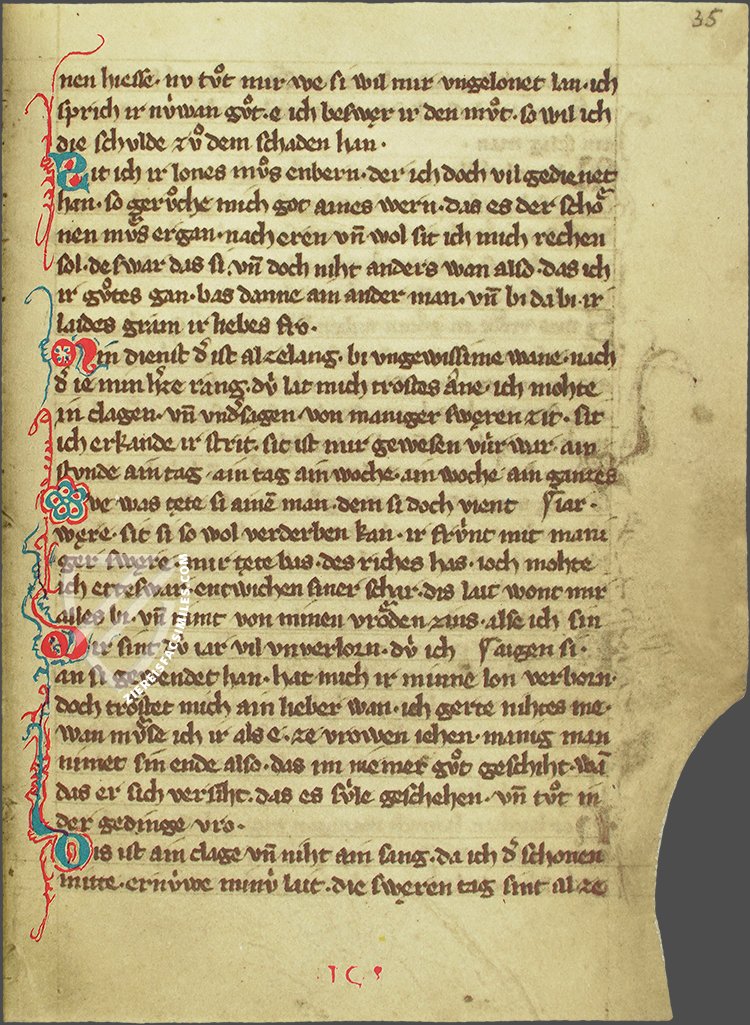 35
nen hiesse · nv tv̊t mir we si wil mir vngelonet lan · ich
sprich ir nv̇wan gv̊t · e ich beswęr ir den mv̊t · so wil ich
die schvlde zv̊ dem schaden han ·
Sit ich ir lones mv̊s enbern · der ich doch vil gedienet
han · so gerv̊che mich got aines wern · das es der schȯ
nen mv̊s ergan · nach eren vn̄ wol sit ich mich rechen
sol · deswar das si · vn̄ doch niht anders wan also · das ich
ir gv̊tes gan · bas danne ain ander man · vn̄ bi da bi · ir
laides gram ir liebes fro ·
Min dienst d͛ ist alzelang · bi vngewissime wane · nach
d͛ ie min h͛ze rang · dv̇ lat mich trostes âne · ich mohte
in clagen · vn̄ vnd͛sagen von maniger swęren zit · sit
ich erkande ir strit · sit ist mir gewesen vúr war · ain
stvnde ain tag · ain tag ain woche · ain woche ain ganzes
Owe was tete si ainē man · dem si doch vient iar ·
węre · sit si so wol verderben kan · ir frv̇nt mit mani
ger swęre · mir tete bas · des riches has · ioch mohte
ich etteswar · entwichen siner schar · dis lait wont mir
alles bi · vn̄ nimt von minen vrȯden zins · alse ich sin
Mir sint dv̇ iar vil vnverlorn · dv̇ ich aigen si ·
an si gewendet han · hat mich ir minne lon verborn ·
doch trȯstet mich ain lieber wan · ich gerte nihtes me ·
wan mv̇se ich ir als e · ze vrowen iehen · manig man
nimet sin ende also · das im niemer gv̊t geschiht · wā
das er sich versiht · das es sv̇le geschehen · vn̄ tv̊t in
der gedinge vro ·
Dis ist ain clage vn̄ niht ain sang · da ich d͛ schonen
mitte · ernv̇we minv̇ lait · die swęren tag sint al ze
WWW.FACSIMILES.COM